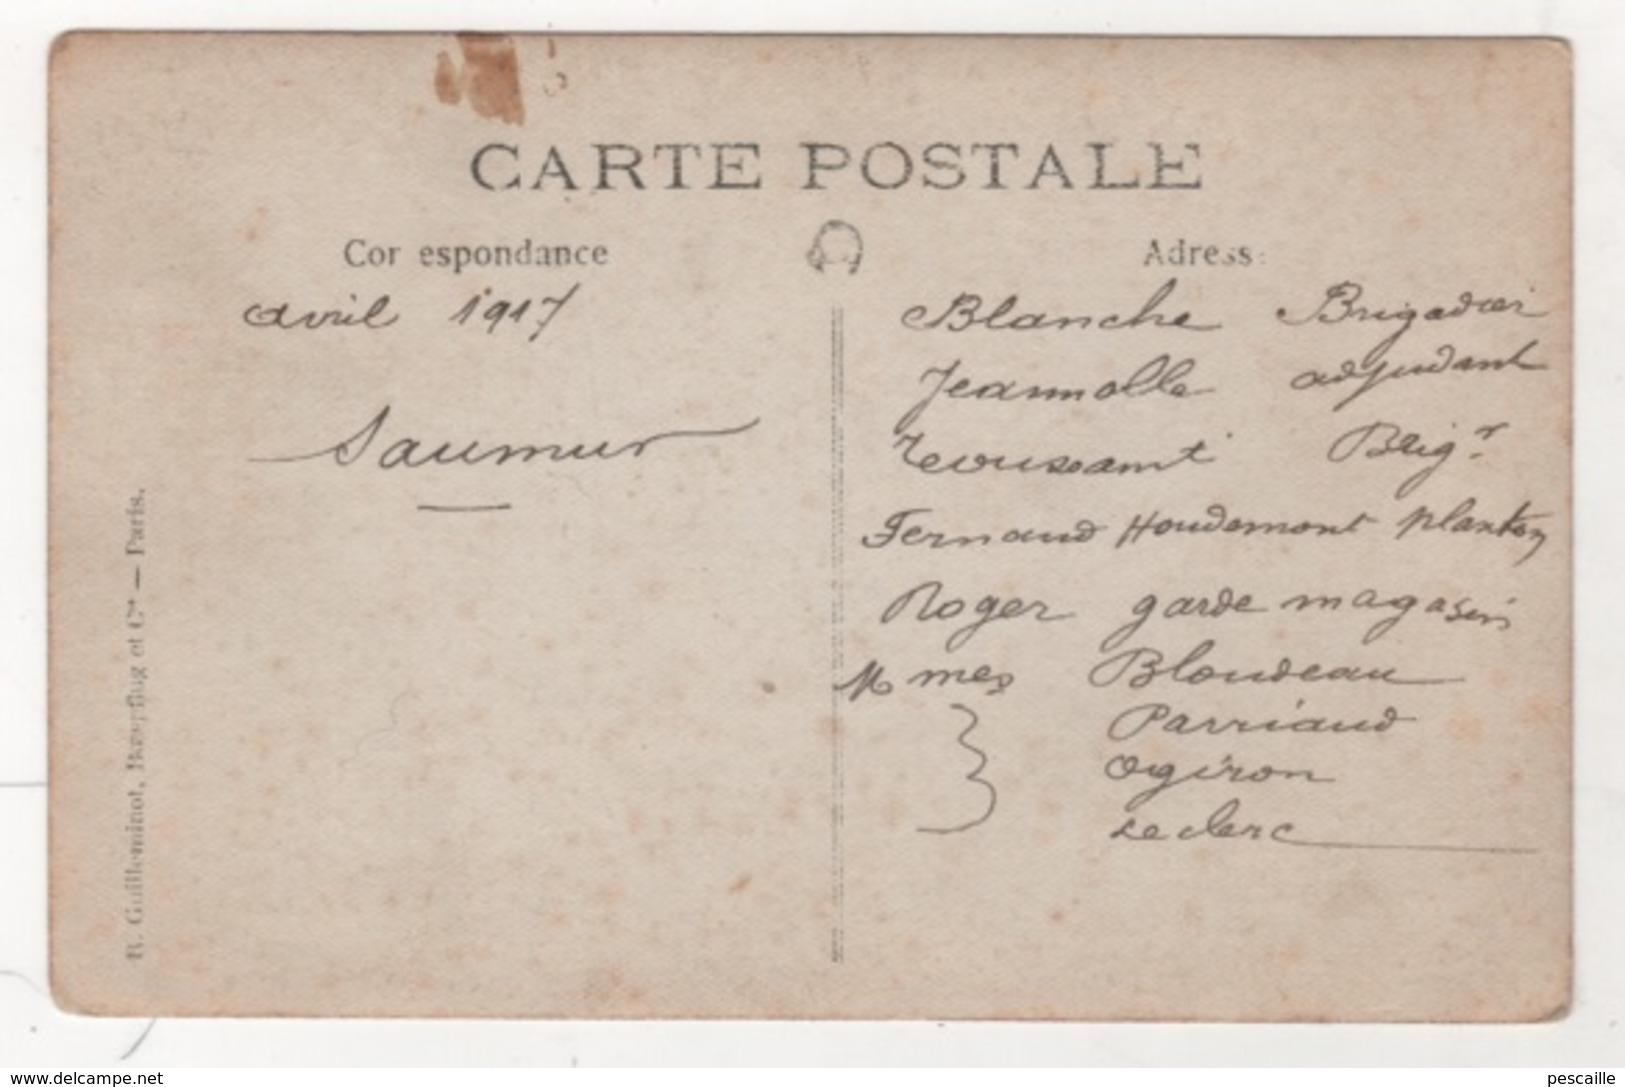 CARTE POSTALE
Cor espondance
avril 1917
Saumur
Adresse
Blanche Brigadier
Jeannolle adjudant
Toussaint Brigr
Fernaud Houdemont planton
Roger garde magasin
Mmes Bloudeau
Parriaud
Ogiron
Leclerc
R. Guilleminot, Bœspflug et Cie — Paris.
www.delcampe.net
pescaille